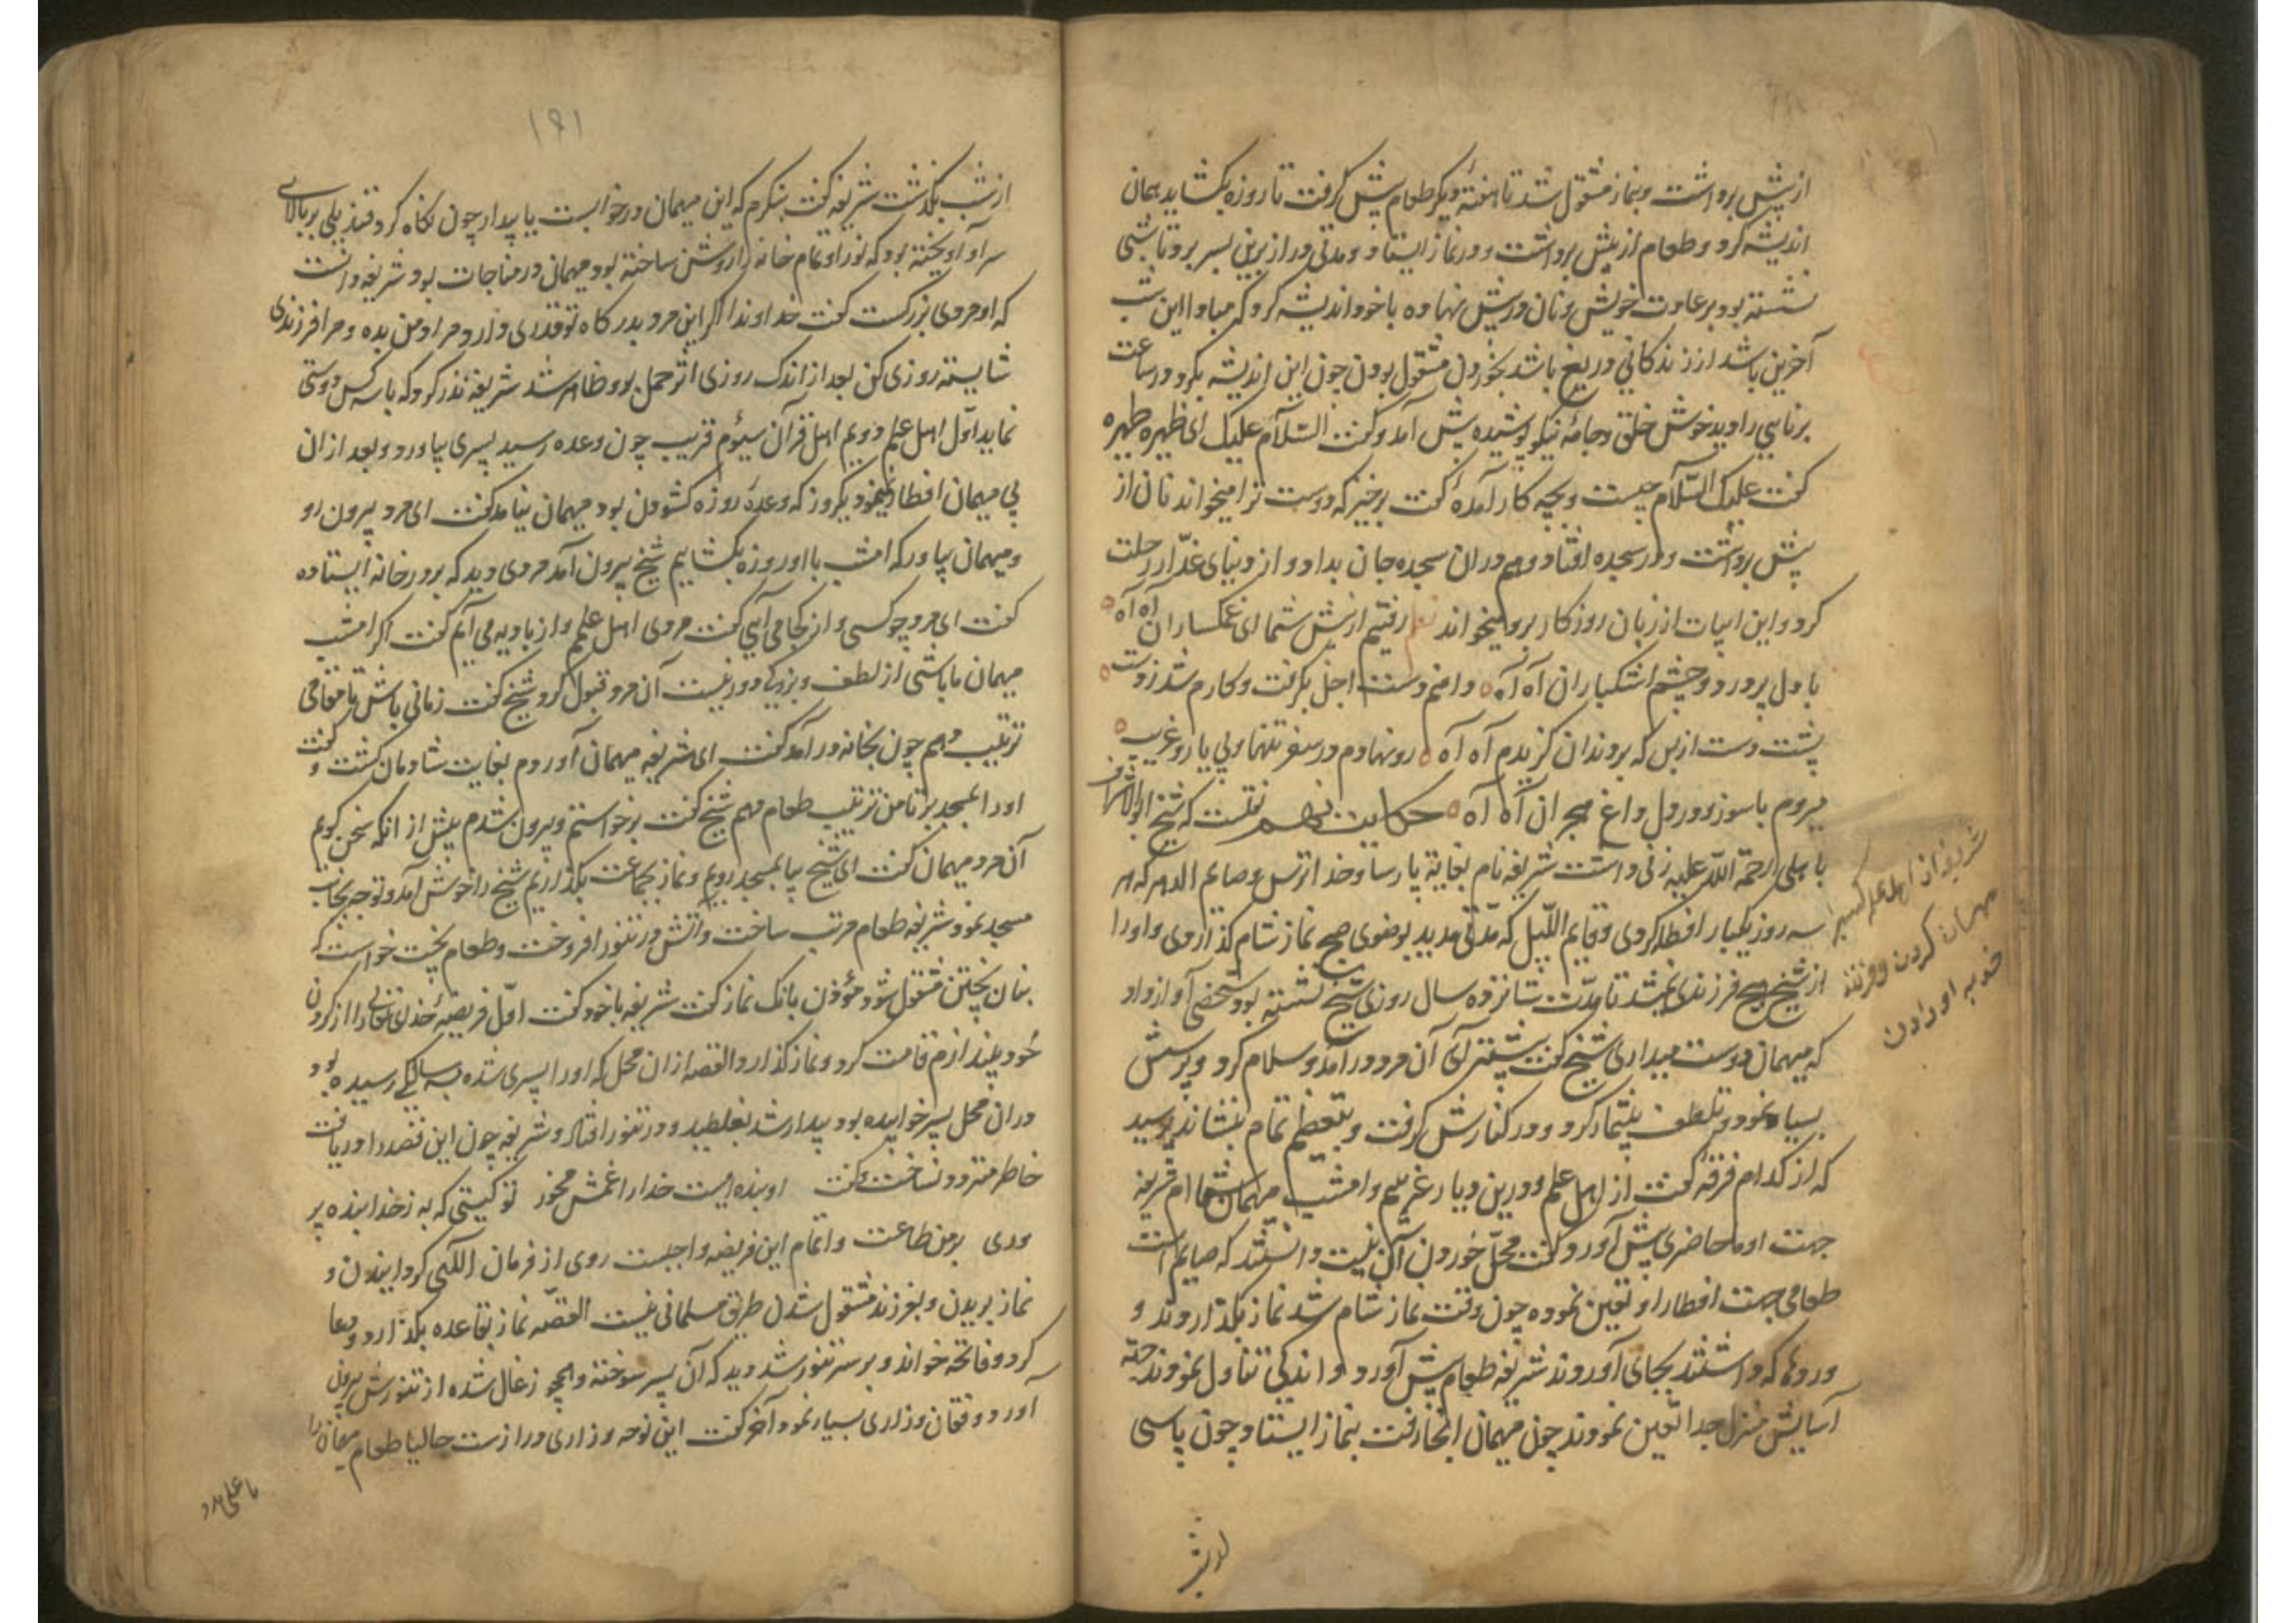 از پیش برداشت و بنماز مشغول شد تا هفتهٔ دیگر طعام پیش گرفت تا روزه بکشاید همان
اندیشه کرد و طعام از پیش برداشت و در نماز ایستاد و مدتی دراز برین بسر برد تا شبی
نشسته بود بر عادت خویش و نان در پیش نهاده با خود اندیشه کرد که مبادا این شب
آخرین باشد از زندکانی دریغ باشد بخوردن مشغول بودن چون این اندیشه بکرد در ساعت
برنایی را دید خوش خلق و جامهٔ نیکو پوشیده پیش آمد و کفت السلام علیک ای ظهره ظهره
کفت علیک السلام چیست و بچه کار آمدهٔ کفت برخیز که دوست ترا میخواند نان از
پیش برداشت و در سجده افتاد و هم دران سجده جان بداد و از دنیای غدّار رحلت
کرد و این ابیات از زبان روزکار برو میخواند نظم رفتیم از پیش شما ای غمکساران آه آه
با دل پر درد و چشم اشکباران آه آه دامنم دست اجل بکرفت و کارم شد ز دست
پشت دست از بس که بدندان کزیدم آه آه رو نهادم در سفر تنها و بی یار و غریب
میروم با سوز و در دل داغ هجران آه آه حکایت نهم نقلست که شیخ ابوالاشراف
باهلی رحمة الله علیه زنی داشت شریفه نام بغایة پارسا و خدا ترس و صایم الدهر که هر
سه روز یکبار افطار کردی و قایم اللیل که مدّتی مدید بوضوی صبح نماز شام کذاردی و او را
از شیخ هیچ فرزندی نمیشد تا مدّت شانزده سال روزی شیخ نشسته بود شخصی آواز داد
که میهمان دوست میداری شیخ کفت پیشتر آی آن مرد در آمد و سلام کرد و پرسش
بسیار نمود و تلطف بیشمار کرد و در کنارش کرفت و بتعظیم تمام بنشاند پرسید
که از کدام فرقهٔ کفت از اهل علم و درین دیار غریبم و امشب مهمان شما ام شریفه
جهت او ماحاضری پیش آورد کفت محلّ خوردن آن نیست دانستند که صایم است
طعامی جهت افطار او تعین نموده چون وقت نماز شام شد نماز بکذاردند و
وردی که داشتند بجای آوردند شریفه طعام پیش آورد و اندکی تناول نمودند جهة
آسایش منزل جدا تعین نمودند چون میهمان انجا رفت بنماز ایستاد چون پاسی
شریفه از اهل علم کسیرا
مهمان کردن و فرزند
خدا باو دادن
۱۹۱
از شب بکذشت شریفه کفت بنکرم که این میهمان در خوابست یا بیدار چون نکاه کرد قندیلی بر بالای
سر او آویخته بود که نور او تمام خانه را روشن ساخته بود و میهمان در مناجات بود شریفه دانست
که او مردی بزرکست کفت خداوندا اکر این مرد بدرکاه تو قدری دارد مراد من بده و مرا فرزندی
شایسته روزی کن بعد از اندک روزی اثر حمل بدو ظاهر شد شریفه نذر کرد که با سه کس دوستی
نماید اوّل اهل علم دویم اهل قرآن سیوم قریب چون وعده رسید پسری بیاورد و بعد از ان
بی میهمان افطار نمیفرمود یکروز که وعدهٔ روزه کشودن بود میهمان نیامد کفت ای مرد بیرون رو
و میهمان بیاور که امشب با او روزه بکشاییم شیخ بیرون آمد مردی دید که بر در خانه ایستاده
کفت ای مرد چه کسی و از کجا می آیی کفت مردی اهل علمم و از بادیه می آیم کفت اکر امشب
میهمان ما باشی از لطف و بزرکی دور نیست آن مرد قبول کرد شیخ کفت زمانی باش تا مقامی
ترتیب دهم چون بخانه در آمد کفت ای شریفه میهمان آوردم بغایت شادمان کشت و کفت
او را بمسجد بر تا من ترتیب طعام دهم شیخ کفت برخواستم و بیرون شدم پیش از انکه سخن کویم
آن مرد میهمان کفت ای شیخ بیا بمسجد رویم و نماز بجماعت بکذاریم شیخ را خوش آمد و توجه بجانب
مسجد نمود شریفه طعام مرتب ساخت و آتش در تنور افروخت و طعام بپخت خواست که
بنان پختن مشغول شود مؤذن بانک نماز کفت شریفه با خود کفت اوّل فریضهٔ خدای تعالی را از کردن
خود بیندازم قامت کرد و نماز کذارد القصه ازان محل که او را پسری شده به سالکی رسیده بود
دران محل پسر خوابیده بود بیدار شد بغلطید و در تنور افتاد و شریفه چون این قصه را دریافت
خاطر متردد نساخت و کفت او بنده ایست خدا را غمش مخور تو کیستی که به ز خدا بنده پر
وری بر من طاعت و اتمام این فریضه واجبست روی از فرمان الهی کردانیدن و
نماز بریدن و بفرزند مشغول شدن طریق مسلمانی نیست القصّه نماز بقاعده بکذارد و دعا
کرد و فاتحه خواند و بر سر تنور شد دید که آن پسر سوخته و همچو زغال شده از تنورش بیرون
آورد و فغان و زاری بسیار نمود آخر کفت این نوحه و زاری درازست حالیا طعام میهمان را
یا علی مدد